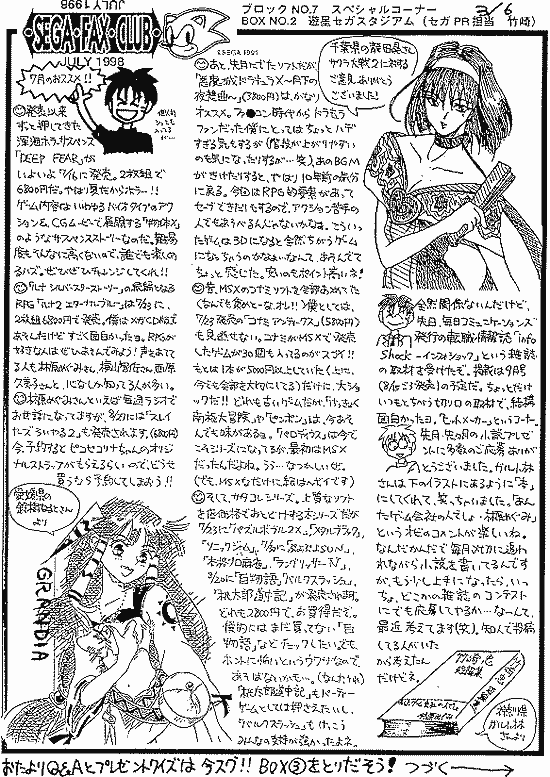 JULY 1998
・SEGA・FAX・CLUB・
©SEGA 1991
JULY 1998
ブロックNO.7 スペシャルコーナー
BOX NO.2 遊星セガスタジアム（セガPR担当 竹崎）
3/6
7月のおススメ!!
発売以来
ずっと押してきた
深海ホラーサスペンス
「DEEP FEAR」が
いよいよ7/16に発売。2枚組で
6800円だ。やはり夏だからホラー!!
ゲーム内容はいわゆるバイオタイプのアク
ションを、CGムービーで展開する「物体X」
のようなサスペンスストーリーなのだ。難易
度もそんなに高くないので、誰でも楽しめ
るハズ。ぜひぜひチャレンジしてくれ!!
RPG「ルナ2エターナルブルー」は7/23に、
2枚組6800円で発売。僕はメガCD版で
あそんだけどすごく面白かったヨ。RPGが
好きな人はぜひあそんでみよう!声もあてて
久美子さんと、になしか知ってる人が多い。
林原めぐみさんといえば毎週ラジオで
お世話になってますが、
も発売されます。(6800円)
今、予約すると
ルストラップがもらえるらしいので、どうせ
買うなら予約してしまおう!!
愛媛県の
さん
より
GRANDIA
あと、先日でたソフトだが
「悪魔城ドラキュラX〜月下の
夜想曲〜」(5800円)は、かなり
オススメ。ファ●コン時代からドラキュラ
ファンだった僕にとってはちょっとハデ
すぎる気もするが(階段が上がりやすい
のも気になったりするが…笑)、あのBGM
がきけただけすると、やはり10年前の気分
に戻る。今回はRPG的要素があって
セーブできたりもするので、アクション苦手の
人でもあそべるんじゃないかなぁ。こういっ
たゲームは3Dになると全然ちがうゲーム
になっちゃうのかなぁ…なんて、あそんでて
ちょっと感じた。安いのもポイント高いネ!
昔、MSXのコナミソフトを全部あつめてた
(なんでも集めとーなオレ!!)僕としては、
7/23発売の「コナミアンティークス」(5800円)
も見逃せない。コナミがMSXで発売
したゲームが30個も入ってるのがスゴイ!!
もとは1本が5000円以上していた(上に、
今でも全部を大切にしてる)だけに、大ショッ
クだ!! どれも古いゲームだが、「けっきょく
南極大冒険」や「ピンポン」は、今あそ
んでも味がある。「パロディウス」は今で
こそシリーズになってるが、最初はMSX
だったんだよね。う…なつかしいぜ。
(でも、MSXなだけに絵はハデです)
そして、サタコレシリーズ。上質なソフト
を低価格でおとどけする本シリーズだが
7/23に「パズルボブル2X」、「メタルブラック」、
「ソニックジャム」、7/30に「ぷよぷよSUN」、
「本格プロ麻雀」、「ラングリッサーIV」、
8/20に「百物語」、「バルクスラッシュ」、
「桃太郎道中記」が発売されます。
どれも2800円で、お買得だぞ。
僕的にはまだ買ってない「百
物語」などチェックしたいところ。
ホントに怖いというウワサなので、
あそばないかも…。(なんだそれ)
「桃太郎道中記」もパーティー
ゲームとしては押さえたいし、
「バルクスラッシュ」もけっこう
みんなの支持が強かったよネ。
千葉県の
さん
サクラ大戦2に対する
ご意見ありがとう
ございました!
全然関係ないんだけど、
先日、毎日コミュニケーションズ
発行の転職情報誌「info
Shock -インフォショック-」という雑誌
の取材を受けたぞ。掲載は9月号
(8/6ごろ発売)の予定だ。ちょっとだけ
いつもとちがう切り口の取材で、結構
面白かったヨ。「ヒットメーカー」というコーナー。
先月、先々月の小説プレゼ
ントに多数のご応募ありが
とうございました。ガルル林
さんは下のイラストにあるように「本」
にしてくれて、笑っちゃいました。「なん
たってゲーム会社の人でしょ…林原めぐみ」
というオビのコメントが楽しいね。
なんだかんだで毎月〆切に追わ
れながら小説を書いてるんです
が、もう少し上手になったら、いっ
ちょ、どこかの雑誌のコンテスト
にでも応募してやるか…なーんて、
最近考えてます(笑)。知人で投稿
してる人がいた
から考えたん
だけどネ。
竹崎忠
短篇集
神奈川県
ガルル林
さんより
おたよりQ&Aとプレゼントクイズは今スグ!! BOX③をとりだそう! つづく→